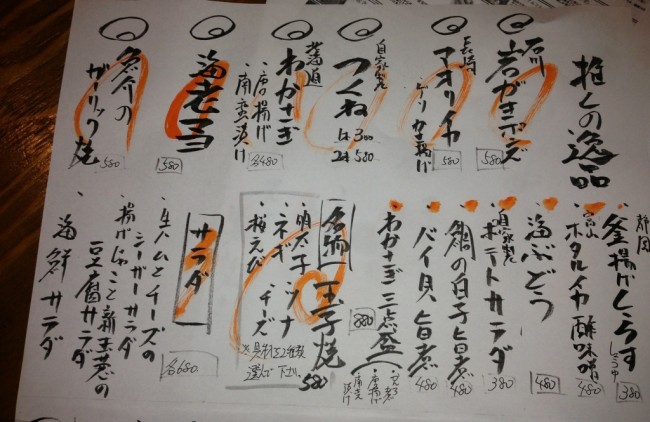 推しの逸品
石川
岩がきポン酢
580
長崎
アオリイカ
580
自家製
つくね
1本 300
2本 580
北海道
わかさぎ
・唐揚げ
・南蛮漬け
各480
海老マヨ
580
ガーリック焼
580
静岡
釜揚げしらす
380
富山
ホタルイカ酢味噌
480
海ぶどう
480
自家製
ポテトサラダ
380
鯛の白子旨煮
480
バイ貝旨煮
480
わかさぎ三点盛
880
南蛮漬け
名物 玉子焼
580
明太子 ツナ
ネギ チーズ
桜えび
※具材を2種類
選んで下さい
サラダ
各680
・生ハムとチーズの
シーザーサラダ
・揚げじゃこと新玉葱の
豆腐サラダ
・海鮮サラダ